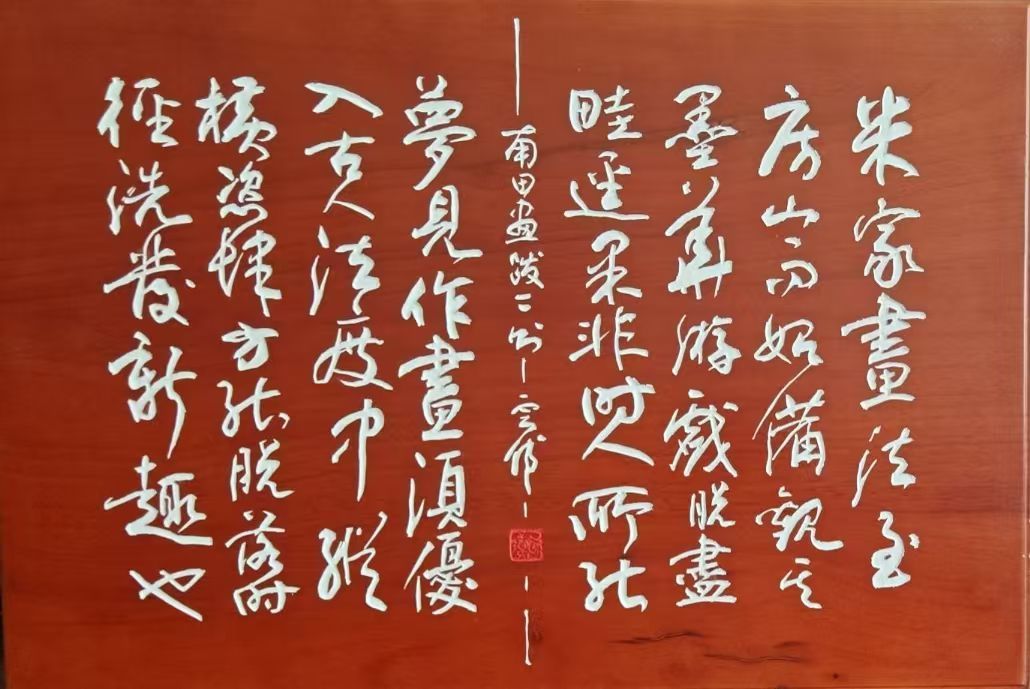 米家畫法至
房山而始備觀其
墨華游戲脱盡
畦逕果非时人所能
南田画跋二则
夢見作畫須優
入古人法度中縱
橫恣肆方能脱落时
徑洗發新趣也